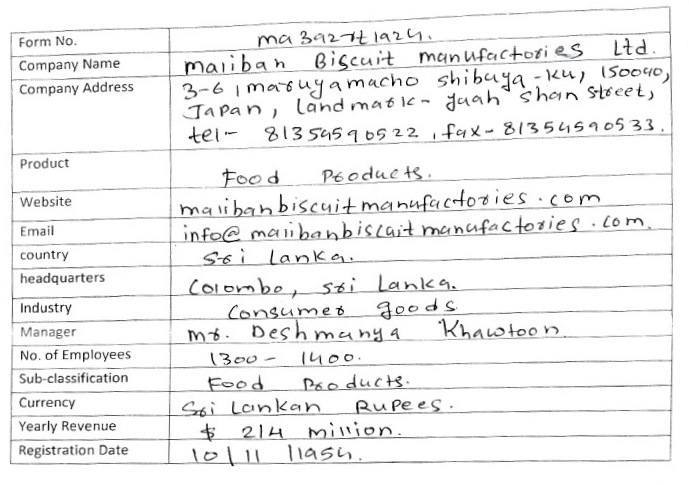 Form No. ma392rt1924.
Company Name Maliban Biscuit manufactories Ltd.
Company Address 3-6 1maruyamacho shibuya-ku, 150040,
Japan, landmark- yuah shan street,
tel- 81354590522, fax- 81354590533.
Product Food Products.
Website malibanbiscuitmanufactories.com
Email info@malibanbiscuitmanufactories.com.
country Sri lanka.
headquarters Colombo, sri lanka.
Industry Consumer goods
Manager mr. Deshmanya Khawtoon
No. of Employees 1300- 1400.
Sub-classification Food Products.
Currency Sri Lankan Rupees.
Yearly Revenue $ 214 million.
Registration Date 10/11/1954.